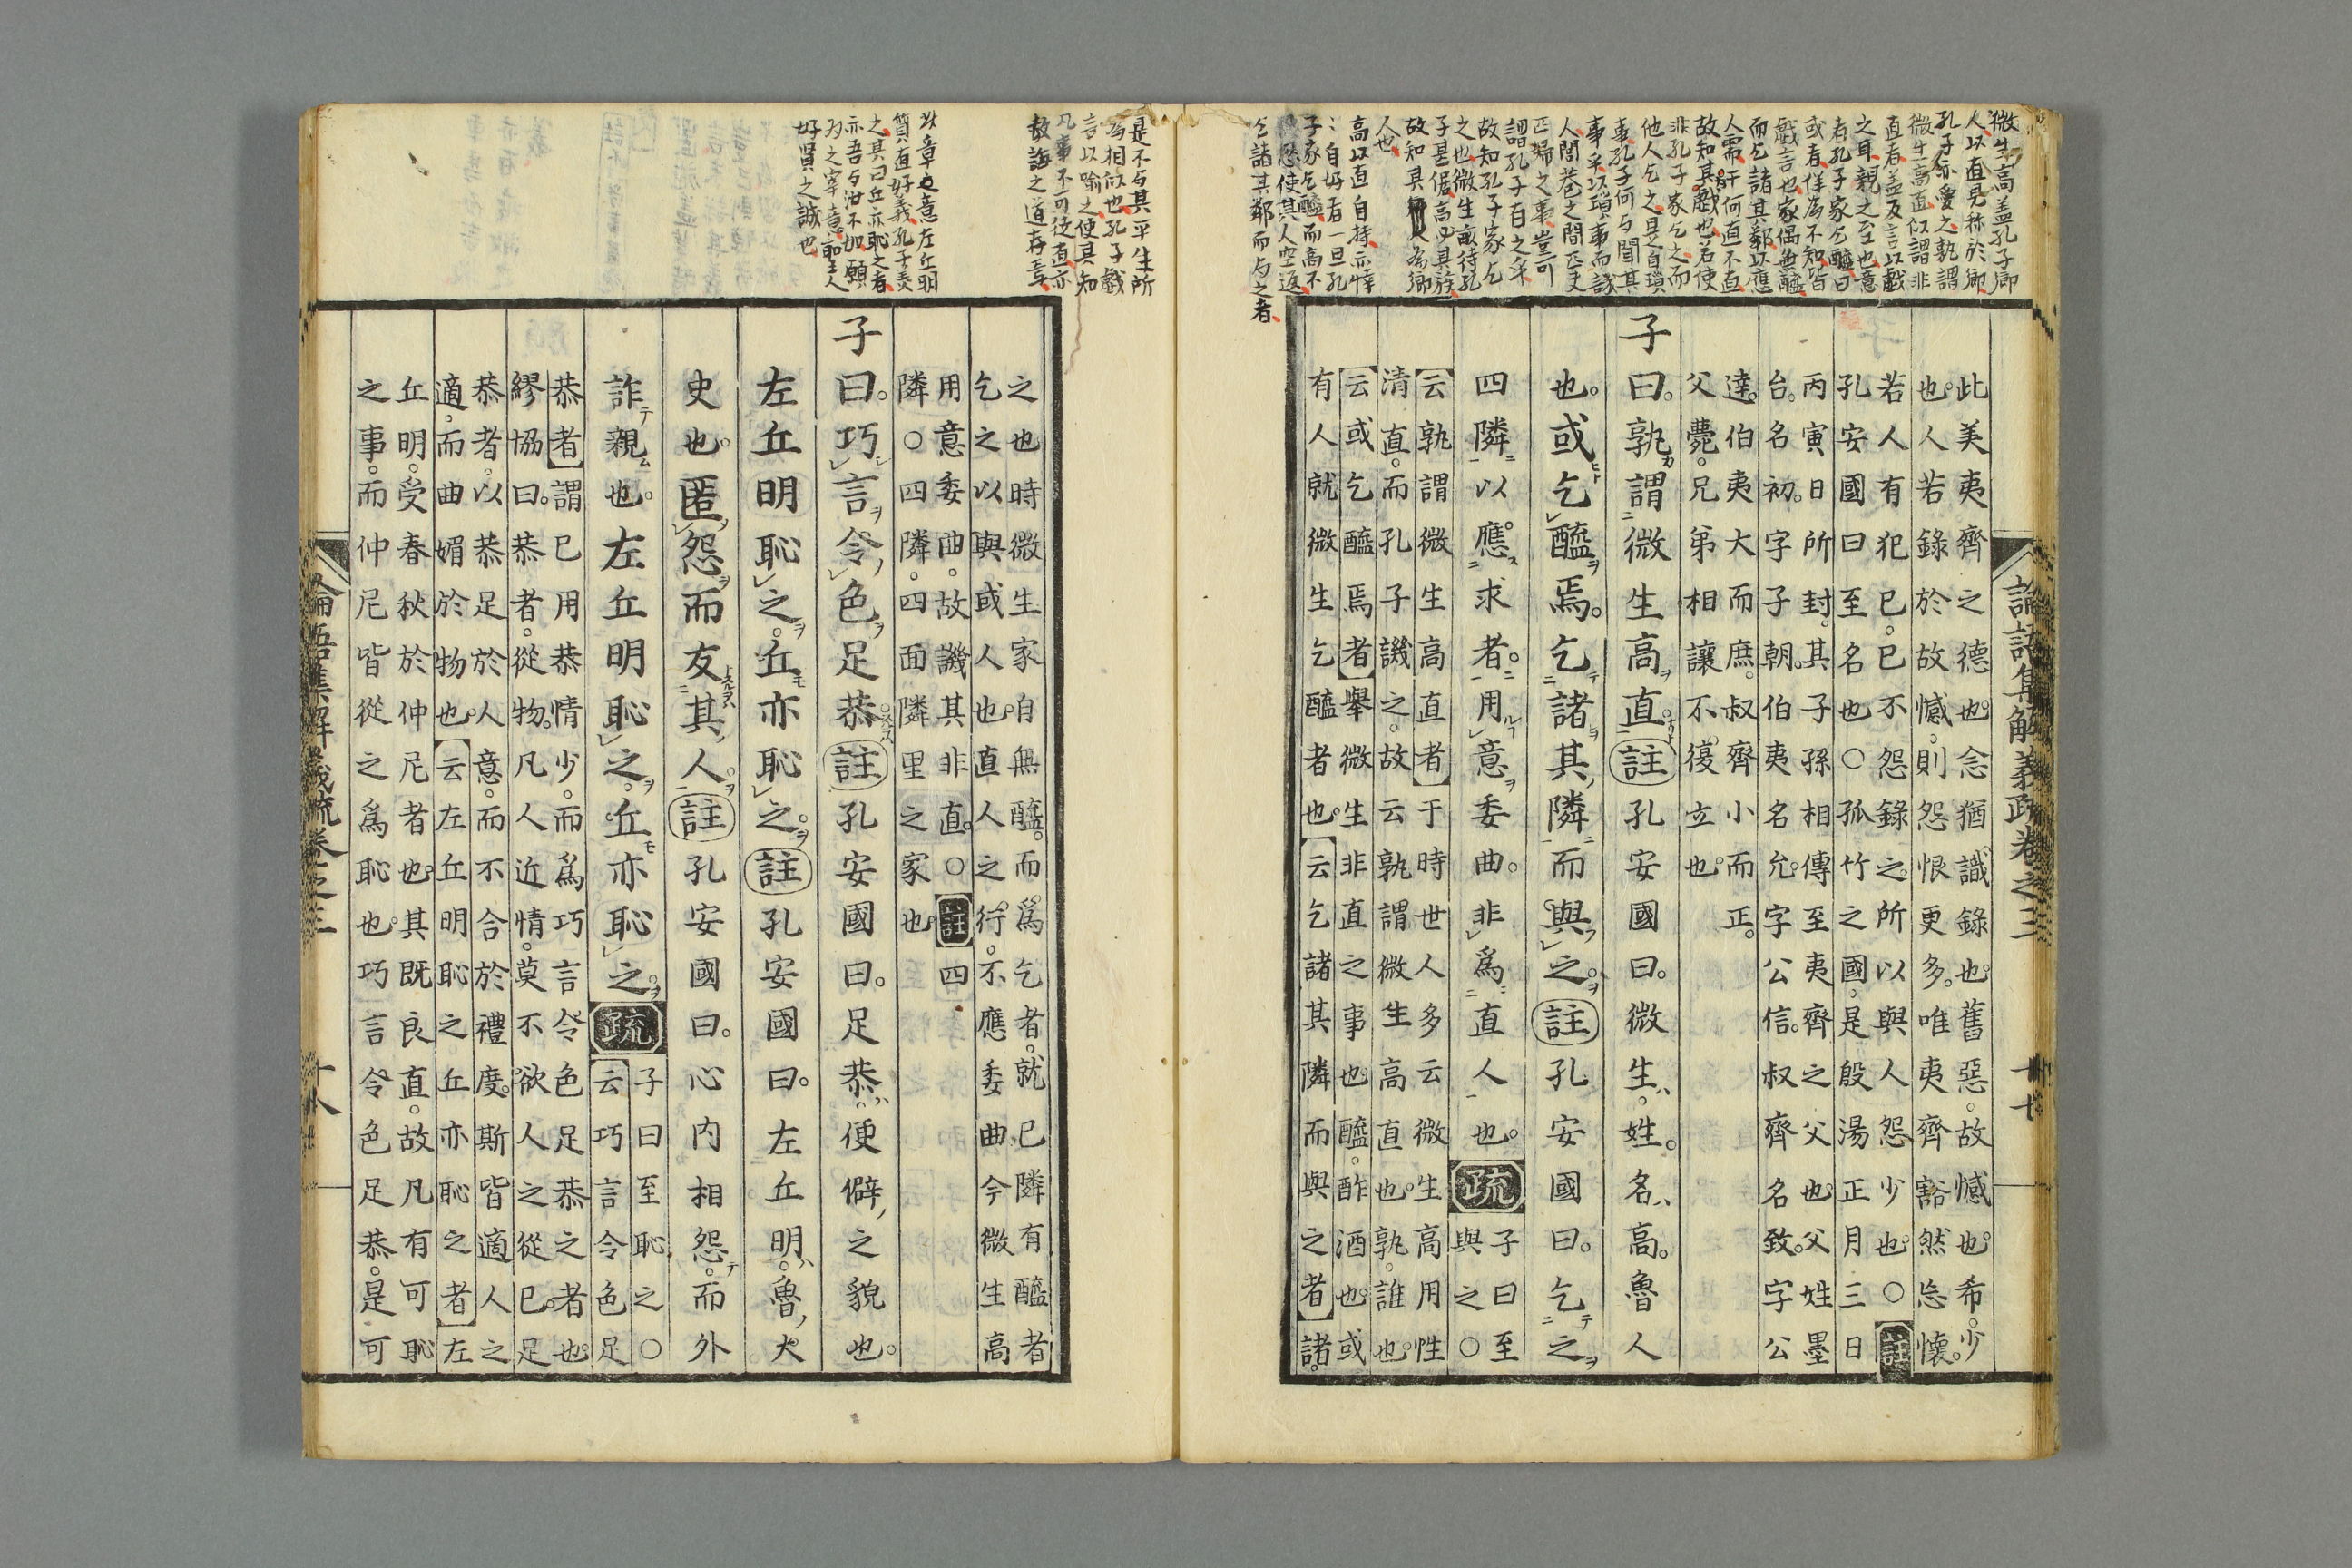 微生高盖孔子卿
人以直見称於卿
孔子亦愛之孰謂
微生高直似謂非
直者盖反言以戯
之耳親之至也意
者孔子家乞醯曰
或者佯為不知皆
戯言也家偶無醯
而乞諸其鄰以應
人需何直不直
故知其戯也若使
非孔子家乞之而
他人乞之是自瑣
事孔子何与聞其
事乎以瑣事而譏
人閭巷之間匹夫
匹婦之事豈可
謂孔子百之乎
故知孔子家乞
之也微生畝待孔
子甚倨高必其族
故知其為卿
人也
高以直自持亦悻
〻自好者一旦孔
子家乞醯而高不
忍使其人空返
乞諸其鄰而与之者
論語集解義疏卷之三 廿七
此美夷齊之德也。念猶識錄也。舊惡。故憾也。希。少
也。人若錄於故憾。則怨恨更多。唯夷齊豁然忘懷。
若人有犯己。己不怨錄之。所以與人怨少也。○註
孔安國曰至名也○孤竹之國。是殷湯正月三日
丙寅日所封。其子孫相傳至夷齊之父也。父姓墨
台。名初。字子朝。伯夷名允。字公信。叔齊名致。字公
達。伯夷大而庶。叔齊小而正。
父薨。兄弟相讓。不復立也。
子曰。孰謂微生高直。註孔安國曰。微生。姓。名高。魯人
也。或乞醯焉。乞諸其隣而與之。註孔安國曰。乞之
四隣以應求者。用意委曲。非為直人也。疏子曰至
與之○
云孰謂微生高直者于時世人多云微生高用性
清直。而孔子譏之。故云孰謂微生高直也。孰。誰也。
云或乞醯焉者舉微生非直之事也。醯。酢酒也。或
有人就微生乞醯者也。云乞諸其隣而與之者諸。
是不与其平生所
為相似也孔子戯
言以喩之使其知
凡事不可徒直亦
教誨之道存焉
此章之意左丘明
質直好義孔子美
之其曰丘亦恥之者
亦吾与汝不如願
為之宰意聖人
好賢之誠也
之也時微生家自無醯。而為乞者。就己隣有醯者
乞之以與或人也。直人之行。不應委曲今微生高
用意委曲。故譏其非直。○註四
隣○四隣。四面隣里之家也。
子曰。巧言令色足恭註孔安國曰。足恭。便僻之貌也。
左丘明恥之。丘亦恥之。註孔安國曰。左丘明。魯大
史也。匿怨而友其人註孔安國曰。心內相怨。而外
詐親也。左丘明恥之。丘亦恥之。疏子曰至恥之○
云巧言令色足
恭者謂己用恭情少。而為巧言令色足恭之者也。
繆協曰。恭者。從物。凡人近情。莫不欲人之從己。足
恭者。以恭足於人意。而不合於禮度。斯皆適人之
適。而曲媚於物也。云左丘明恥之丘亦恥之者左
丘明。受春秋於仲尼者也。其既良直。故凡有可恥
之事。而仲尼皆從之為恥也。巧言令色足恭。是可
論語集解義疏卷之三 十八